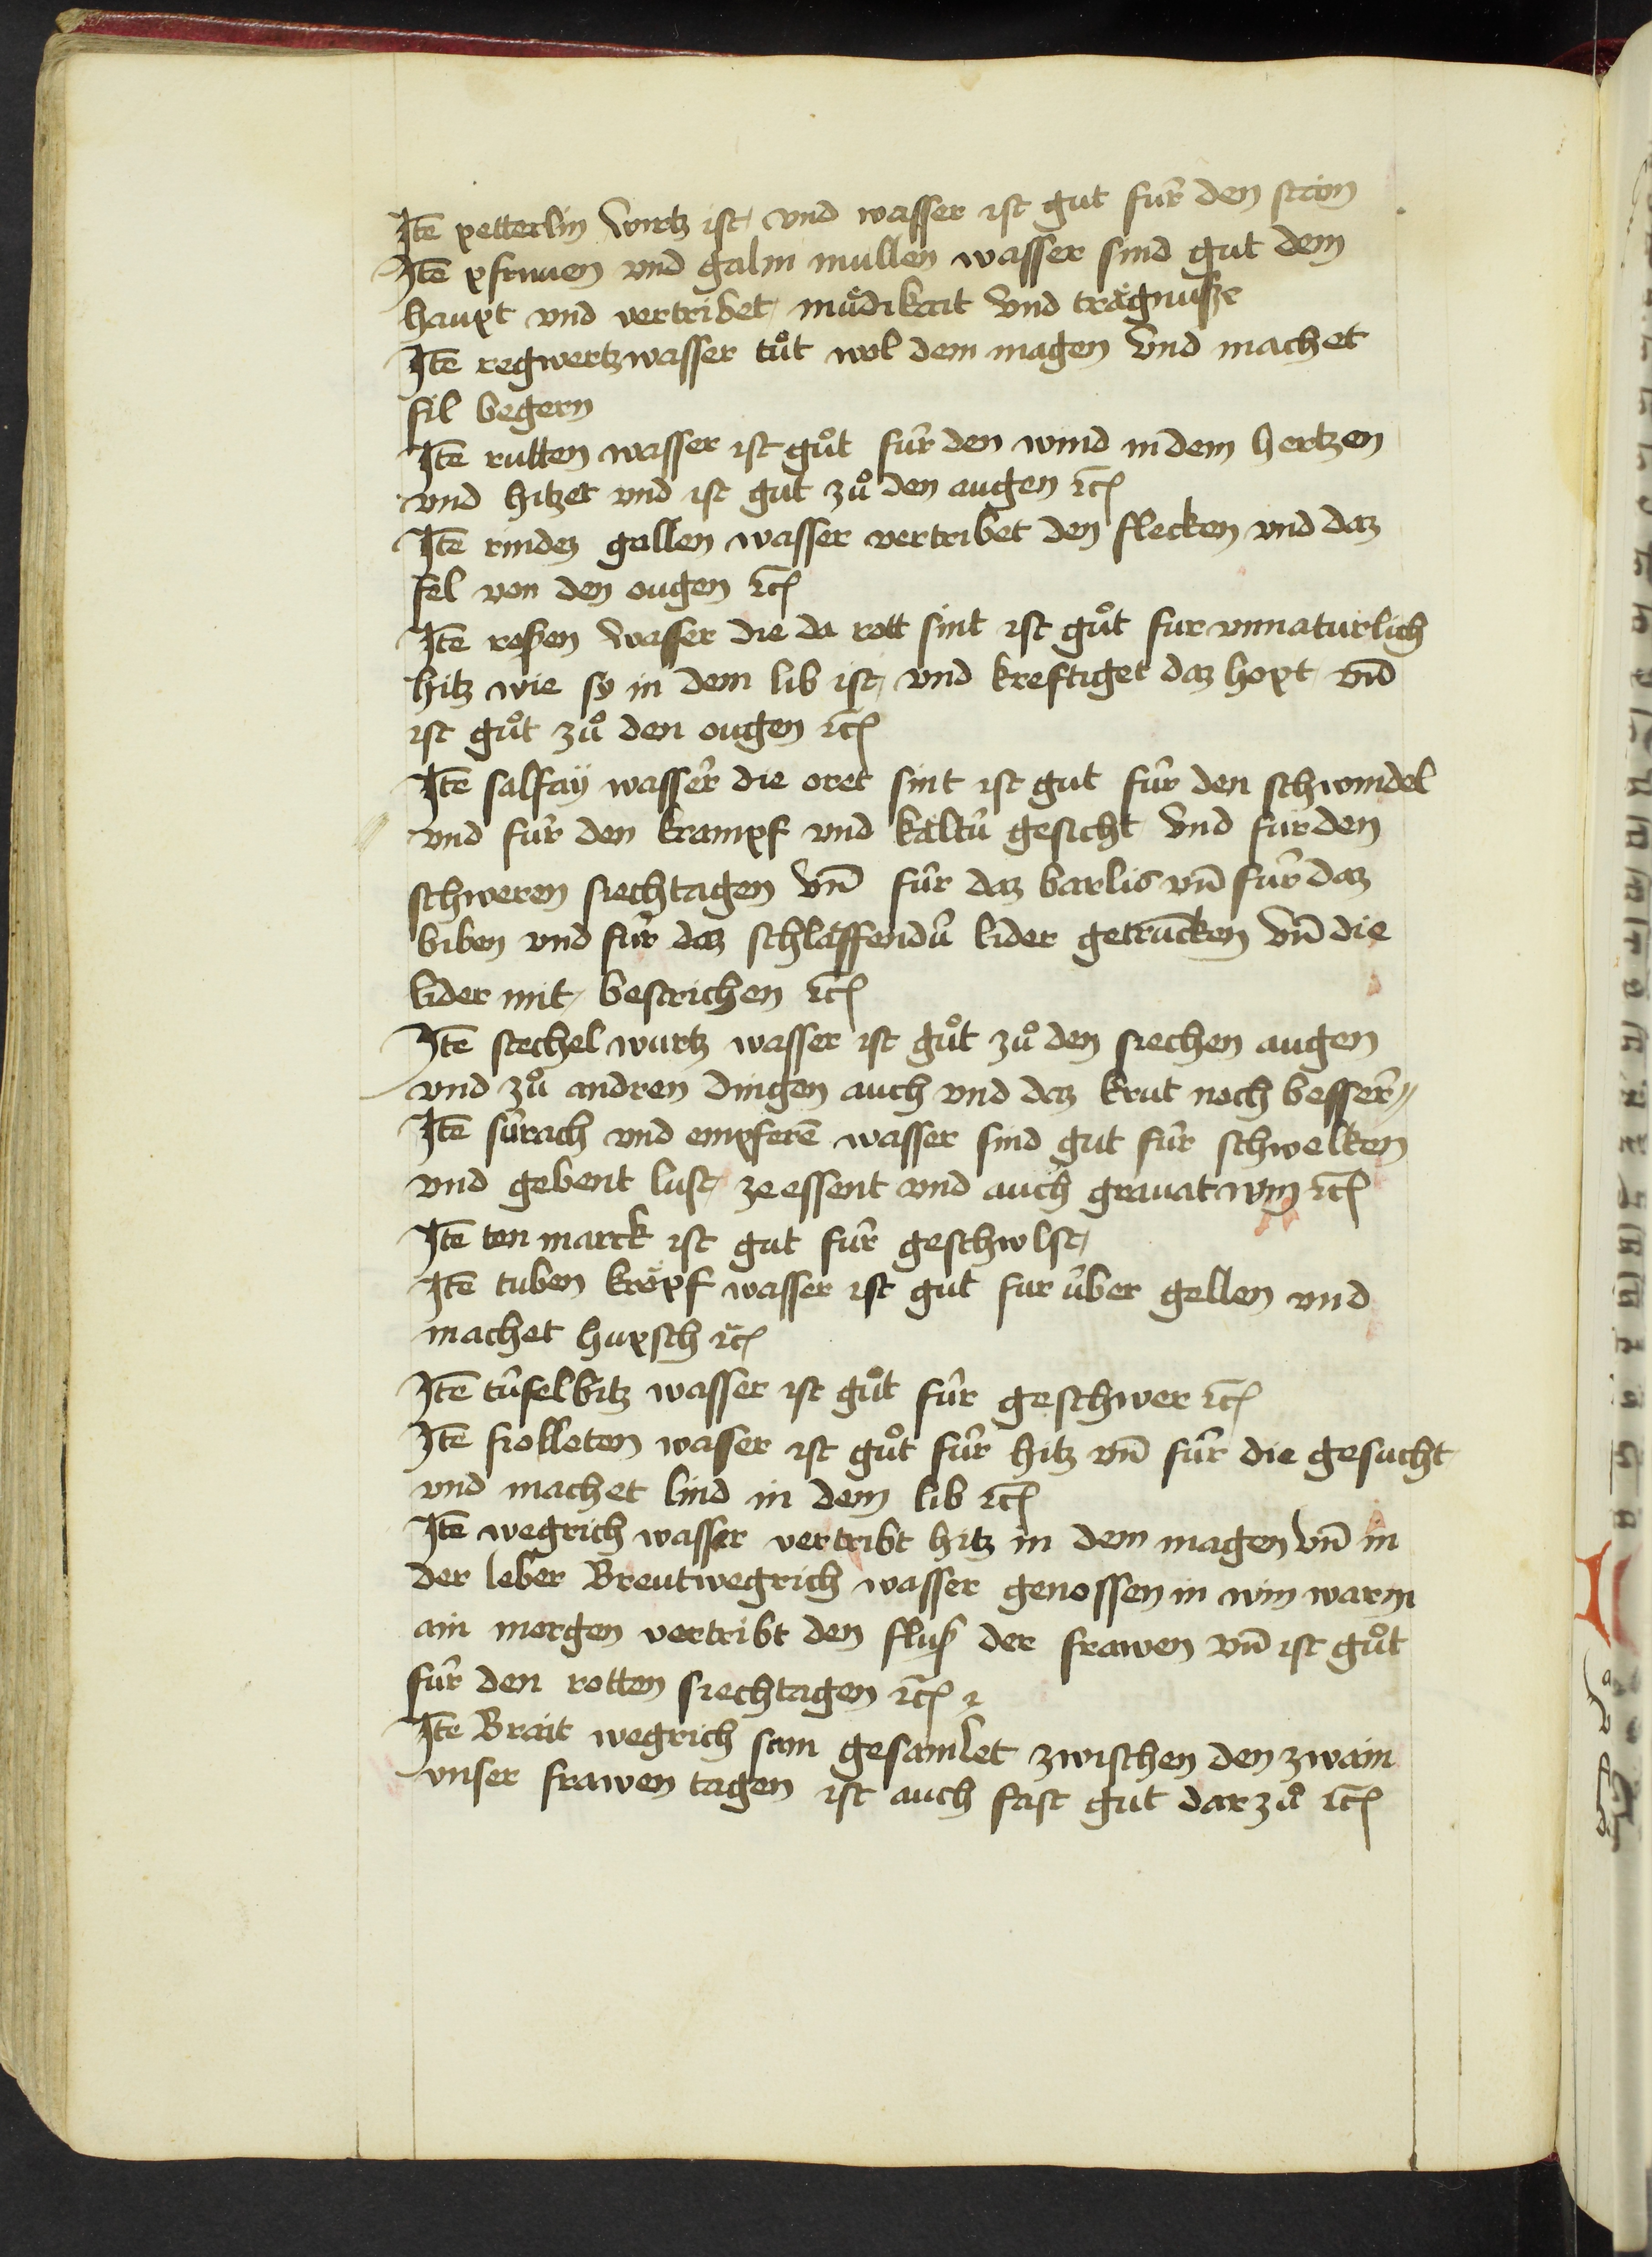 Itē petterlin wurtz ist und wasser ist gut fúr den stain
Itē pfrimen vnd galin mullen wasser sind gut dem
haupt vnd vertribet můdikait vnd trǎgnusze
Itē regwertz wasser tůt wol dem magen vnd machet
fil begern
Itē rutten wasser ist gůt fúr den wind in dem hertzen
vnd hitzet vnd ist gut zů den augen ꝛc̄
Itē rindez gallen wasser vertribet den flecken vnd daz
fel von den ougen ꝛc̄
Itē rosen wasser die da rott sint ist gůt fur vnnaturlich
hitz wie sy in dem lib ist vnd kreftiget daz hopt vnd
ist gůt zů den ougen ꝛc̄
Itē salfaÿ wasser die oret sint ist gut fúr den schwindel
vnd fúr den krampf vnd kaltú gesicht vnd fúr den
schweren siechtagen vn̄ fúr daz barlis vn̄ fúr daz
biben vnd fúr daz schlaffendú lider getrūcken vn̄ die
lider mit bestrichen ꝛc̄
Itē stechel wurtz wasser ist gůt zů den siechen augen
vnd zů andren dingen auch vnd daz krut noch besser
Itē súrach vnd empferē wasser sind gut fúr schwelken
vnd gebent lust ze essent vnd auch granat win ꝛc̄
Itē ten marck ist gut fúr geschwlst
Itē tuben kröpf wasser ist gut fur úber gellen vnd
machet hupsch ꝛc̄
Itē túfelbitz wasser ist gůt fúr geschwer ꝛc̄
Itē fiolleten wasser ist gůt fúr hitz vn̄ fúr die gesucht
vnd machet lind in dem lib ꝛc̄
Itē wegrich wasser vertribt hitz in dem magen vn̄ in
der leber Breitwegrich wasser genossen in win warm
ain morgen vertribt den flusß der frawen vn̄ ist gůt
fúr den rotten siechtagen ꝛc̄
Itē Brait wegrich sam gesamlet zwischen den zwain
vnser frawen tagen ist auch fast gut dar zů ꝛc̄